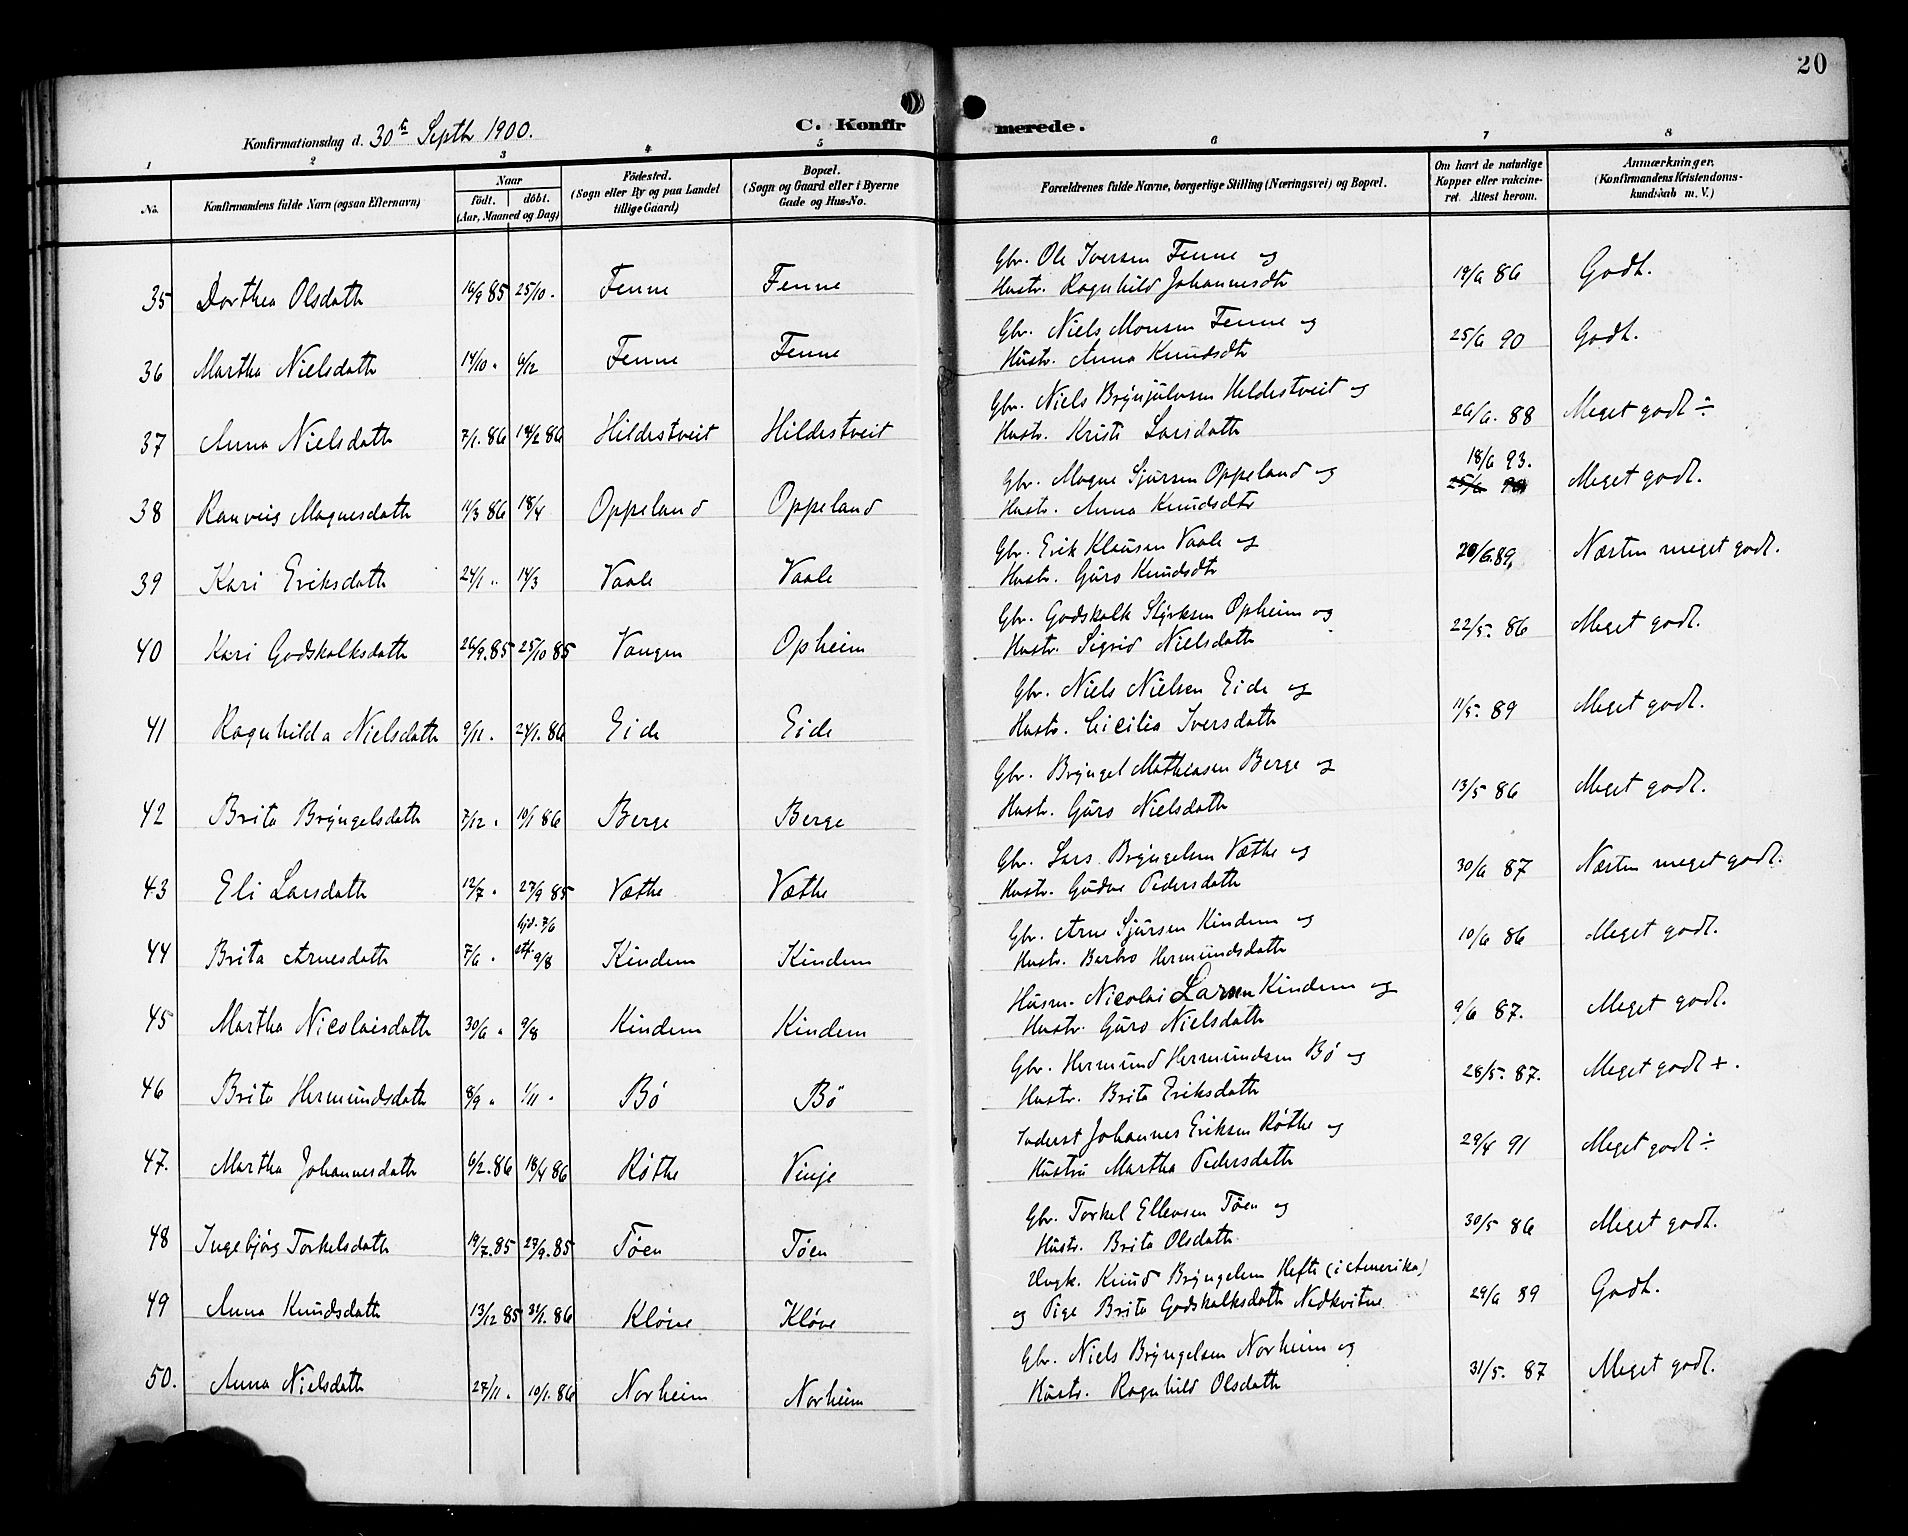 20
Konfirmationsdag d. 30te Septbr 1900.
C. Konfirmerede.
1 2 3 4 5 6 7 8
No. Konfirmandens fulde Navn (ogsaa Efternavn) Naar födt. döbt. (Aar, Maaned og Dag) Födested. (Sogn eller By og paa Landet tillige Gaard) Bopæl. (Sogn og Gaard eller i Byerne Gade og Hus-No. Forældrenes fulde Navne, borgerlige Stilling (Næringsvei) og Bopæl. Om havt de naturlige Kopper eller vakcineret. Attest herom. Anmærkninger, (Konfirmandens Kristendomskundskab m. V.)
Gbr. Ole Iversen Fenne og
35 Dorthea Olsdatr 16/9 85 25/10. Fenne Fenne Hustr. Ragnhild Johannesdtr 19/6 86 Godt.
Gbr. Niels Monsen Fenne og
36 Martha Nielsdatr 14/10 " 6/12 Fenne Fenne Hustr. Anna Knudsdtr 25/6 90 Godt.
Gbr. Niels Brynjulvsen Heldestveit og
37 Anna Nielsdatr 7/1. 86 14/2 86 Hildestveit Hildestveit Hustr. Kristi Larsdatr 26/6. 88 Meget godt ÷
Gbr. Magne Sjursen Oppeland og 18/6 93.
38 Ranveig Magnesdatr 11/3 86 18/4 Oppeland Oppeland Hustr. Anna Knudsdtr 25/6 Meget godt.
Gbr. Erik Klausen Vaale og
39 Kari Eriksdatr 24/1 " 14/3 Vaale Vaale Hustr. Guro Knudsdtr 20/6.89, Næsten meget godt.
Gbr. Godskalk Styrksen Opheim og
40 Kari Godskalksdatr 26/9.85 25/10 85 Vangen Opheim Hustr. Sigrid Nielsdatr 22/5. 86 Meget godt.
Gbr. Niels Nielsen Eide og
41 Ragnhilda Nielsdatr 9/11. 24/1. 86 Eide Eide Hustr. Cicilia Iversdatr 11/5. 89 Meget godt.
Gbr. Bryngel Mathiasen Berge og
42 Brita Bryngelsdatr 7/12 " 10/1 86 Berge Berge Hustr. Guro Nielsdatr 13/5 86 Meget godt.
Gbr. Lars Bryngelsen Væthe og
43 Eli Larsdatr 12/7 " 27/9 85 Væthe Væthe Hustr. Gudve Pedersdatr 30/6 87 Næsten meget godt.
hjd. 7/6 Gbr. Arne Sjursen Kindem og
44 Brita Arnesdatr 7/6 " 9/8 Kindem Kindem Hustr. Barbro Hermundsdatr 10/6 86 Meget godt.
Husm. Nicolai Larsen Kindem og
45 Martha Nicolaisdatr 30/6 " 9/8 Kindem Kindem Hustr. Guro Nielsdatr 9/6 87. Meget godt.
Gbr. Hermund Hermundsen Bø og
46 Brita Hermundsdatr 8/9 " 1/11 " Bø Bø Hustr. Brita Eriksdatr 28/5. 87. Meget godt +.
Inderst Johannes Eriksen Røthe og
47. Martha Johannesdatr 6/2. 86 18/4 86 Røthe Vinje Hustru Martha Pedersdatr 29/4 91 Meget godt ÷
Gbr. Torkel Ellevsen Tøen og
48 Ingebjørg Torkelsdatr 19/7.85 27/9.85 Tøen Tøen Hustr. Brita Olsdatr 30/5 86 Meget godt.
Ungk. Knud Bryngelsen Hefte (i Amerika)
49 Anna Knudsdatr 13/12 85 31/1. 86 Kløve Kløve og Pige Brita Godskalksdatr Nedkvitne 29/6 89 Godt.
Gbr. Niels Bryngelsen Norheim og
50. Anna Nielsdatr 27/11. 10/1. 86 Norheim Norheim Hustr. Ragnhild Olsdatr 31/5. 87 Meget godt.